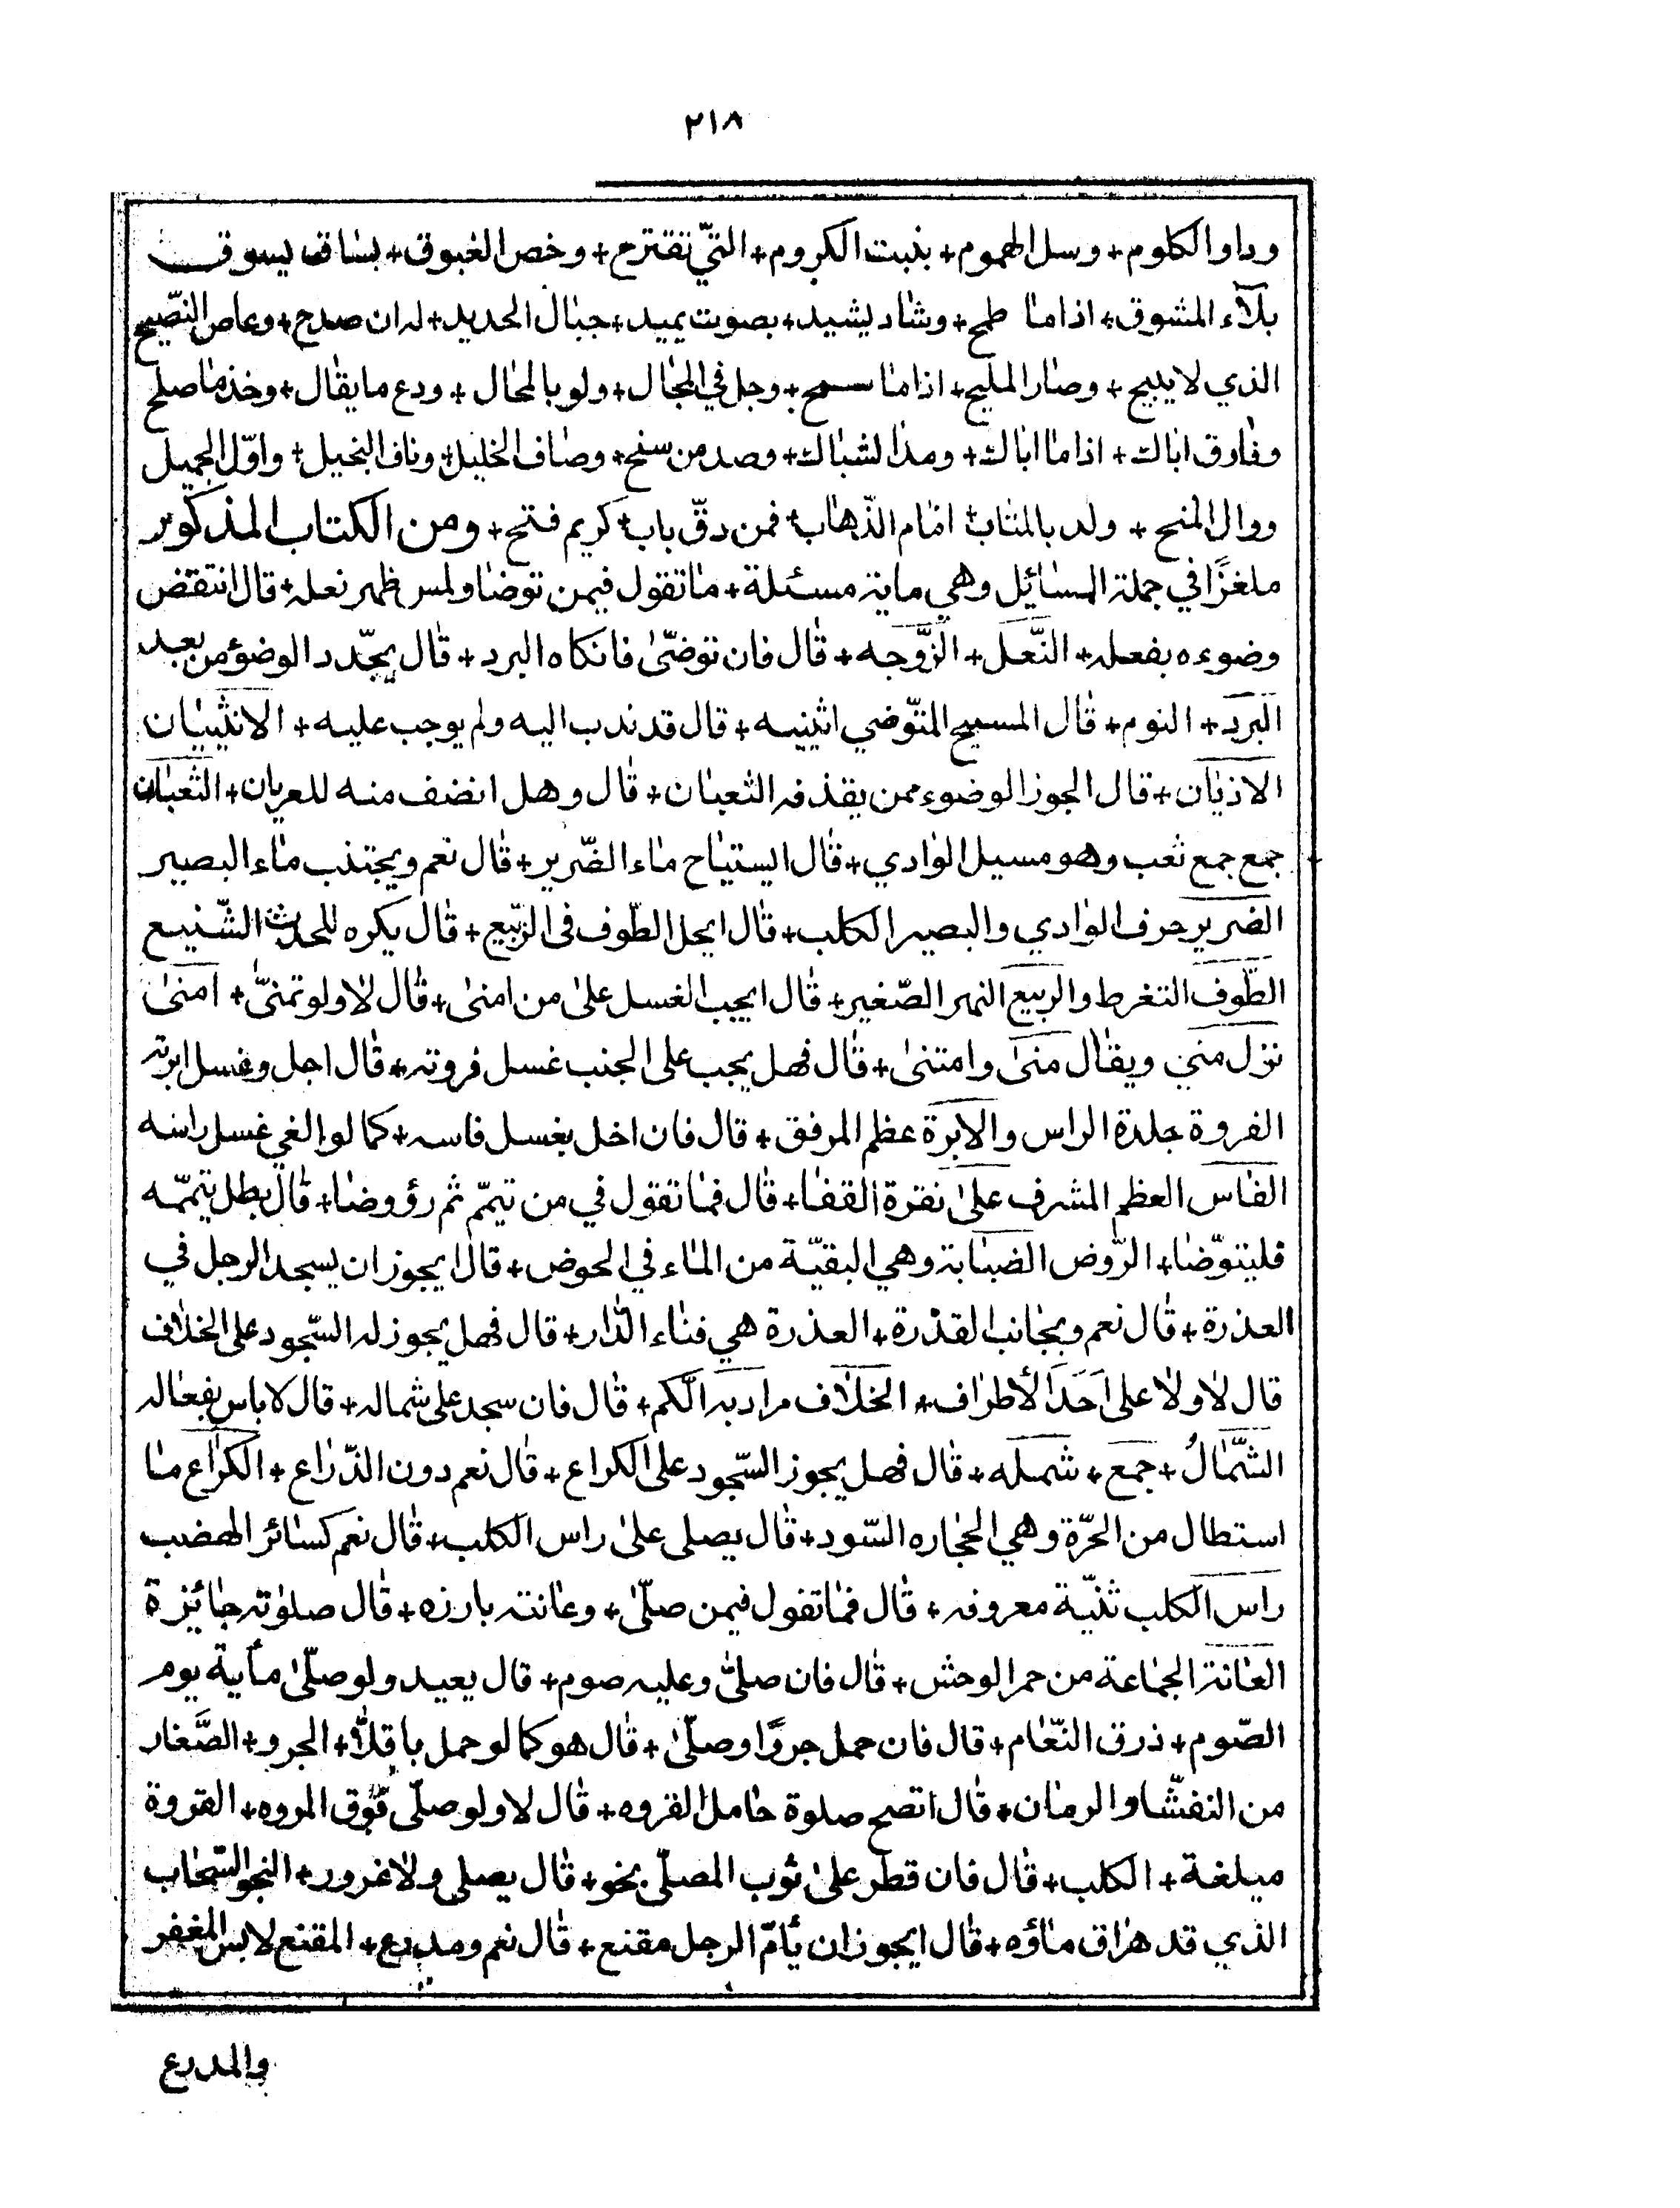 ٢١٨
وداو الكلوم + وسل الهموم + بنبت الكروم + التي تقترح + وخص الغبوق + بساق يسوق
بلآء المشوق + اذاما طمح + وشاد يشيد + بصوت يميد + جبال الحديد + له ان صدح + وعاص النصّيح
الذي لا يبيح + وصار المليح + اذاما سمح + وجل في المحال + ولو بالمحال + ودع ما يقال + وخذ ما صلح
وفارق اباك + اذاما اباك + ومد الشباك + وصد من سنح + وصاف الخليل + وناف البخيل + واوّل الجميل
ووال المنح + ولد بالمتاب + امام الذّهاب + فمن دقّ باب + كريم فتح + ومن الكتاب المذكور
ملغزًا في جملة المسائيل وهي ماية مسئلة + ما تقول فيمن توضا ولمس ظهر نعله + قال انتقض
وضوءه بفعله + النّعل + الزّوجه + قال فان توضّىٰ فانكاه البرد + قال يجّدد الوضؤ من بعد
البرد + النوم + قال المسيح المتّوضي اثنييه + قال قد ندب اليه ولم يوجب عليه + الانثييان
الاذنان + قال الجوز الوضوء ممن يقذفه الثعبان + قال وهل انضف منه للعربان + الثعبان
جمع جمع ثعب وهو مسيل الوادي + قال ايستباح ماء الضّرير + قال نعم ويجتنب ماء البصير
الضرير حرف الوادي والبصير الكلب + قال ايحل الطّوف فى الرّبيع + قال يكره للحدث الشّنيع
الطّوف التغرط والربيع النهر الصّغير + قال ايجب الغسل علىٰ من امنىٰ + قال لا ولو تمنىّٰ + امنىٰ
نزل منىٰ ويقال منىٰ وامتنىٰ + قال فهل يجب على الجنب غسل فروته + قال اجل وغسل ابرته
الفروة جلدة الراس والابرة عظم المرفق + قال فان اخل بغسل فاسه + كما لو الغي غسل راسه
الفاس العظم المشرف علىٰ نقرة القفا + قال فما تقول في من تيمّم ثم رؤوضا + قال بطل يتممّه
فليتوّضاء + الرّوض الضبابة وهي البقيّة من الماء في الحوض + قال ايجوز ان يسجد الرجل في
العذرة + قال نعم ويجانب القذرة + العذرة هي فناء الدّار + قال فهل يجوز له السّجود على الخلاف
قال لا ولا على اَحَدَ الأطراف + الخلاف مراد به الكم + قال فان سجد على شماله + قال لا باس بفعاله
الشّمالُ + جمع + شمله + قال فهل يجوز السّجود على الكراع + قال نعم دون الذّراع + الكراع ما
استطال من الحرّة وهي الحجاره السّود + قال يصلى علىٰ راس الكلب + قال نعم كسائر الهضب
راس الكلب ثنيّة معروفه + قال فما تقول فيمن صلّىٰ + وعانته بارزه + قال صلوته جائيزة
العانة الجماعة من حمر الوحش + قال فان صلىّٰ وعليه صوم + قال يعيد ولو صلّىٰ مأية يوم
الصّوم + ذرق النّعام + قال فان حمل جروًا وصلّىٰ + قال هو كما لو حمل باقلّا + الجرو + الصَّغار
من النفشّا والرمان + قال اتصح صلوة حامل القروه + قال لا ولو صلّى فوق المروه + القروة
ميلغة + الكلب + قال فان قطر علىٰ ثوب المصلّى نجو + قال يصلي ولا غرور + النجو السّحاب
الذي قد هراق ماؤه + قال ايجوز ان يأمّ الرجل مقنع + قال نعم ومدرع + المقنع لابس المغفر
والمدرع